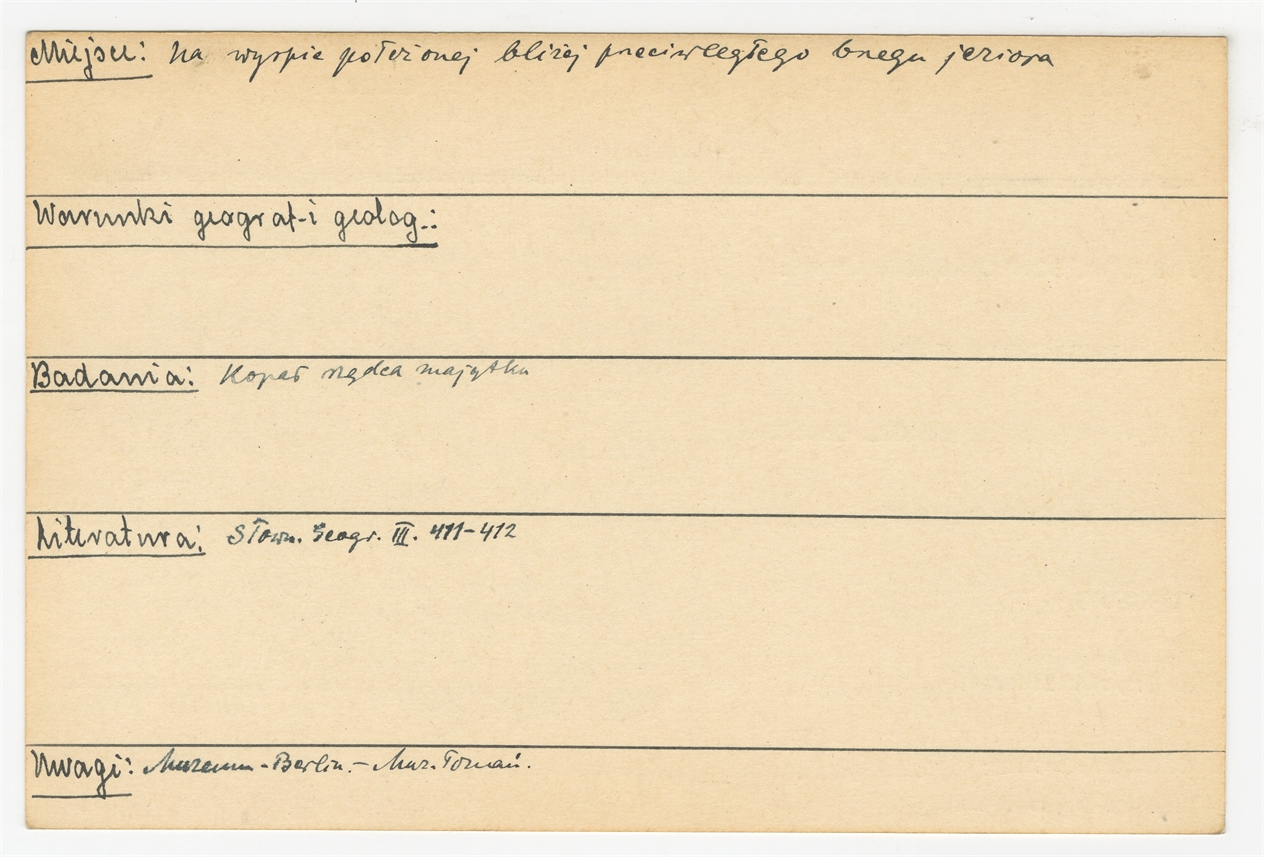 Miejsce: na wyspie położonej bliżej przeciwległego brzegu jeziora
Warunki geograf. i geolog.:
Badania: Kopał rządca majątku
Literatura: Słown. Geogr. III. 411-412
Uwagi: Muzeum - Berlin. - Muz. Poznań.